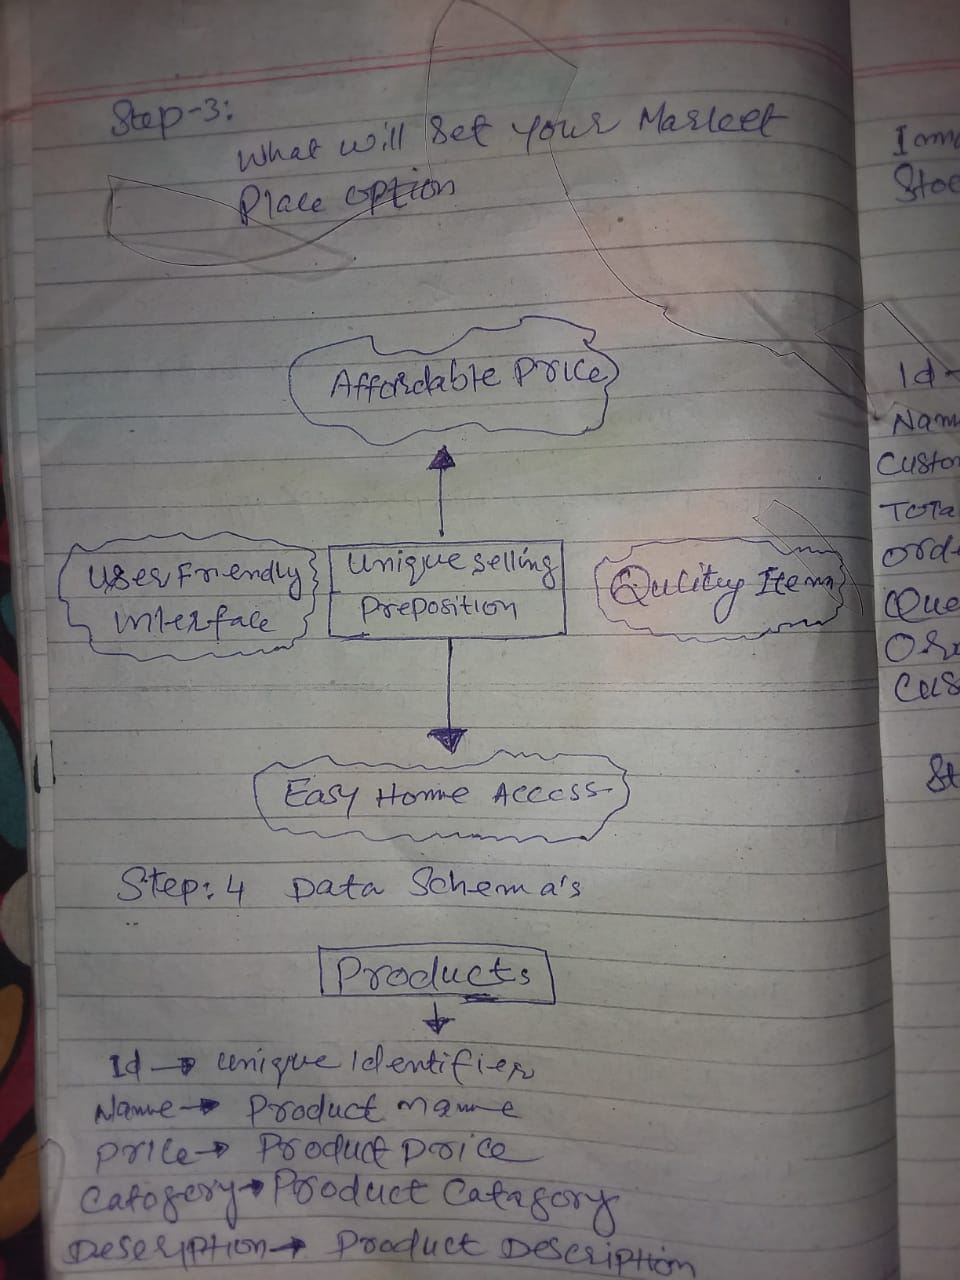 Step-3:
What will Set your Market
Place option
Affordable Price
User Friendly
interface
Unique selling
Preposition
Qulity Items
Easy Home Access
Step: 4 Data Schema's
Products
Id → unique Identifier
Name → Product name
Price → Product price
Catogery → Product Catagory
Description → Product Description
Id
Nam
Custo
Tota
Ord
Que
Cus
St